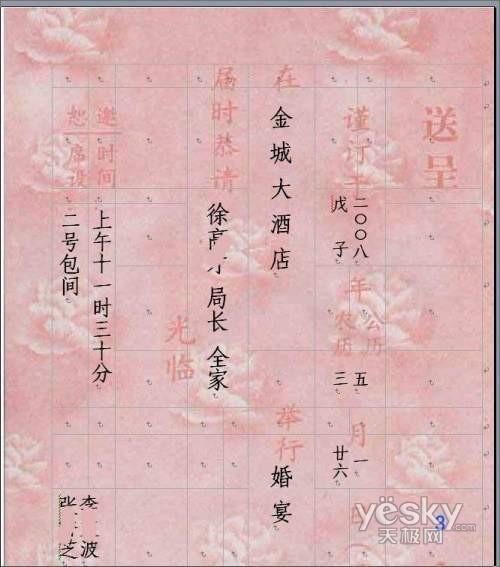 送呈
谨订于
二〇〇八
戊子
年
公历
农历
五
三
月
一
廿六
在金城大酒店举行婚宴
届时恭请
徐 局长全家
光临
邀
时间上午十一时三十分
恕
席设二号包间
李 波
之
3
yësky
天极网